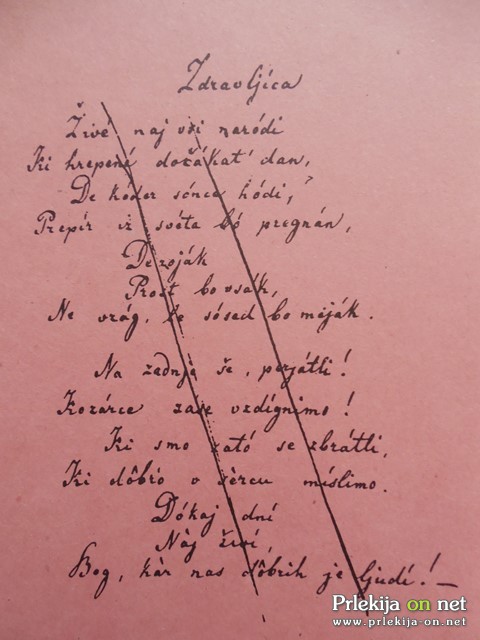 Zdravljica
Živé naj vsi naródi
Ki hrepené dočákat' dan,
De kóder sónce hódi,
Prepir iz svéta bó pregnán,
De roják
Prost bo vsák,
Ne vrág, le sósed bo mèják.
Na zadnje še, perjátli!
Kozárce zase vzdígnimo!
Ki smo zató se zbrátli,
Ki dôbro v sèrcu míslimo.
Dókaj dní
Nàj živí,
Bog, kàr nas dôbrih je ljudí! –
Prlekija on net
www.prlekija-on.net